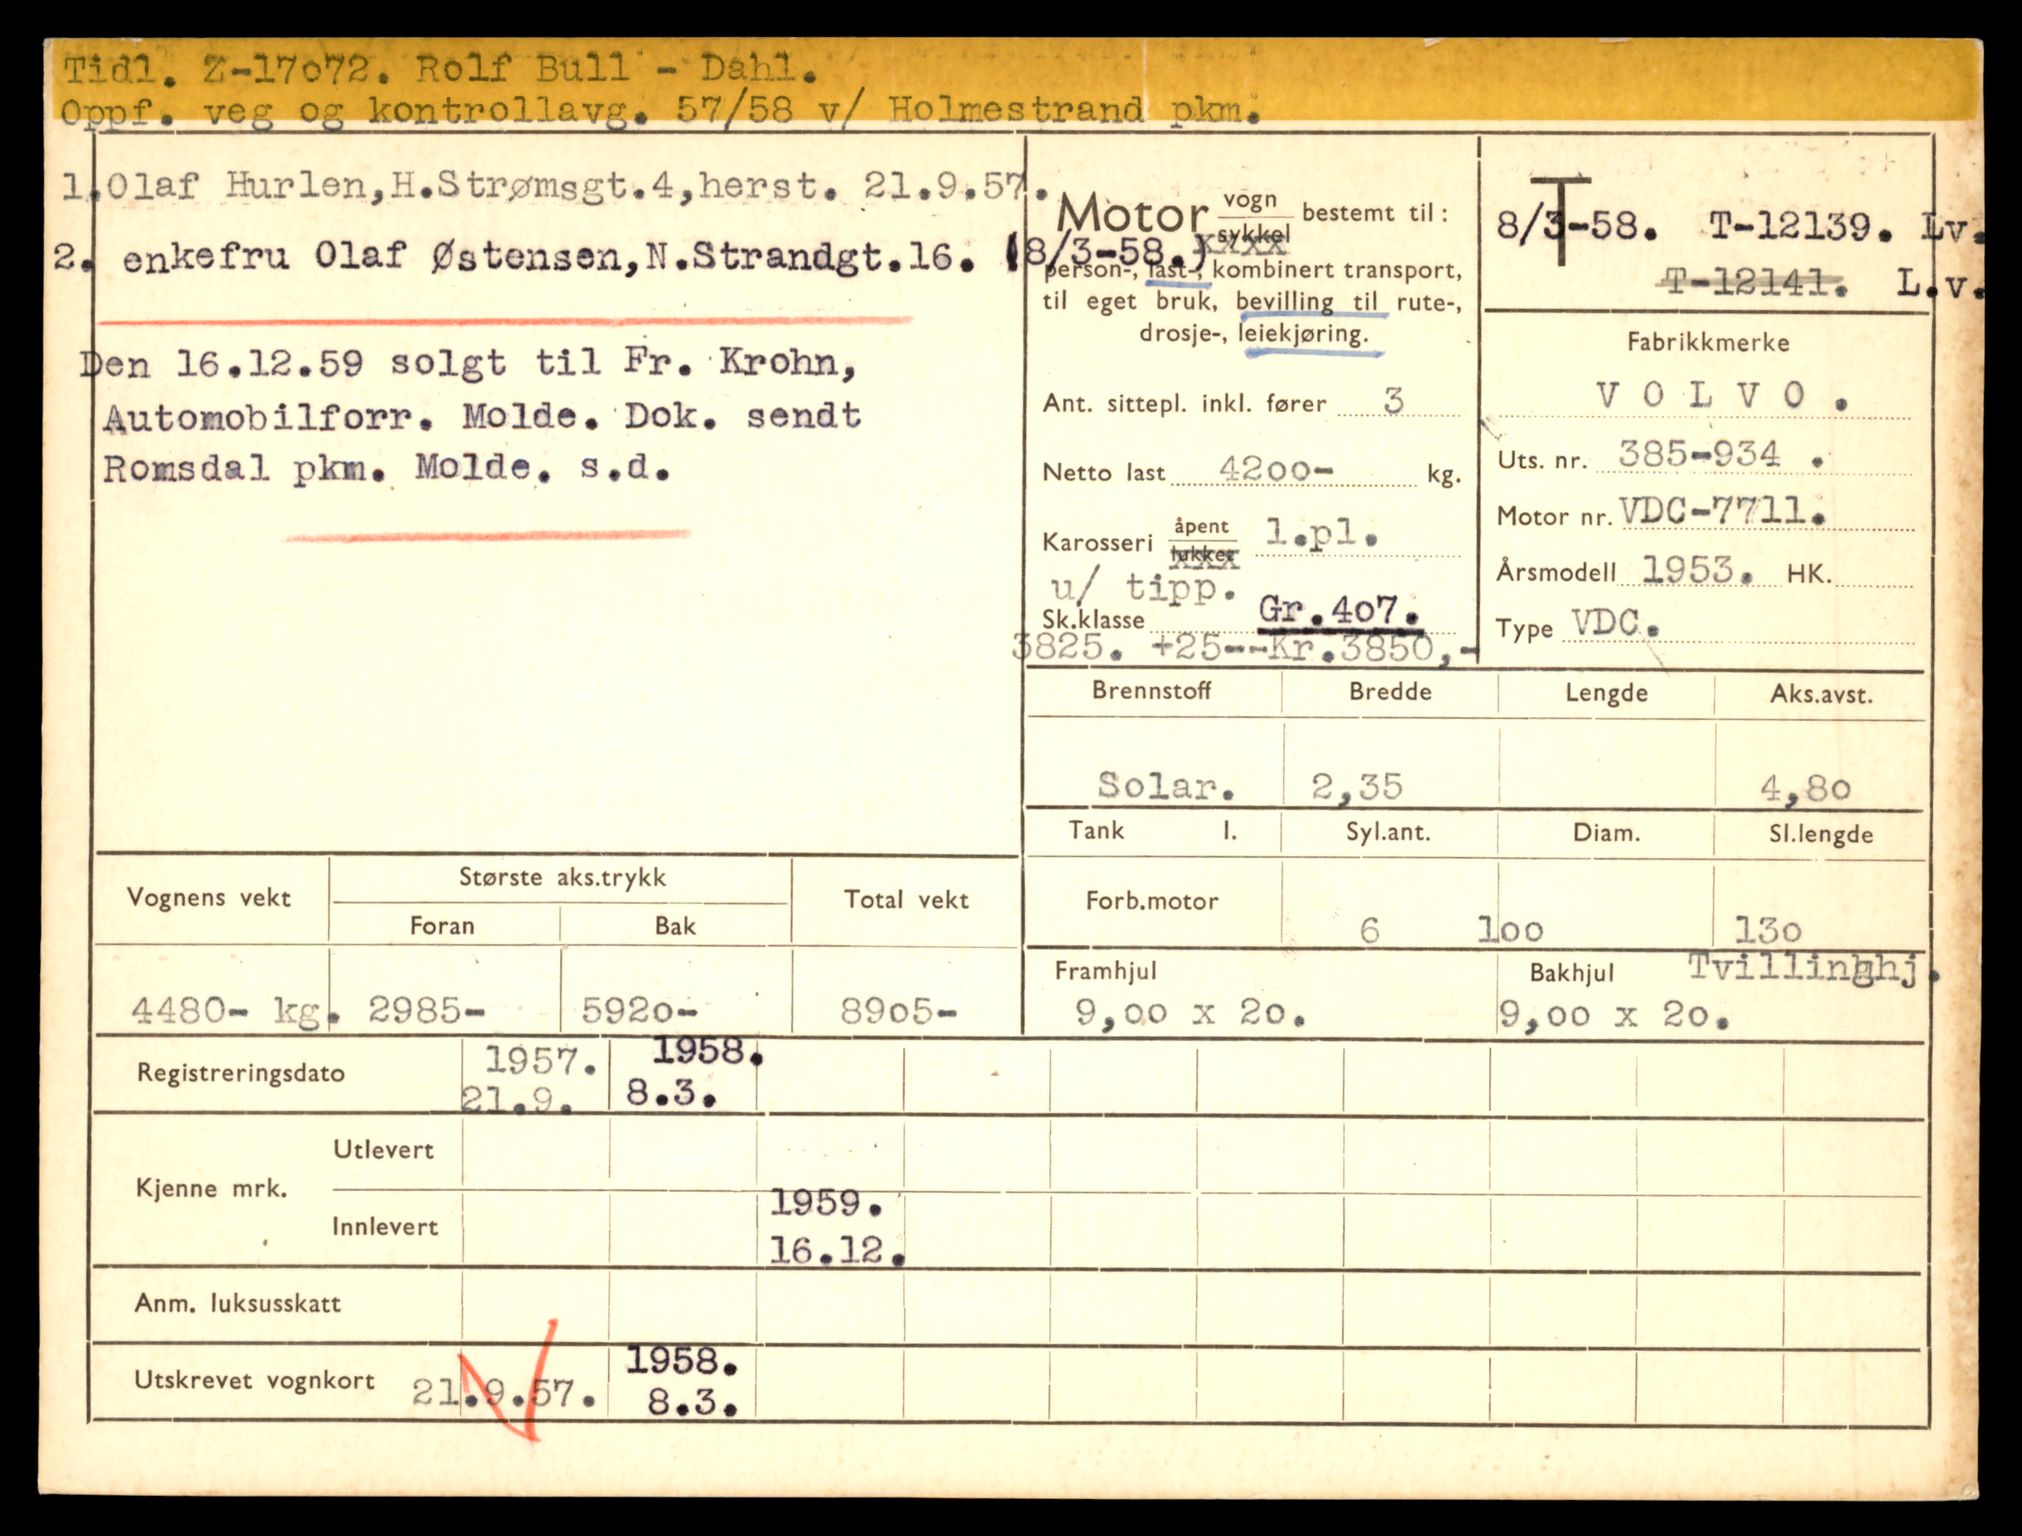 Tidl. Z-17o72. Rolf Bull - Dahl.
Oppf. veg og kontrollavg. 57/58 v/ Holmestrand pkm.
1.Olaf Hurlen,H.Strømsgt.4,herst. 21.9.57.
2. enkefru Olaf Østensen,N.Strandgt.16. (8/3-58.)
Den 16.12.59 solgt til Fr. Krohn,
Automobilforr. Molde. Dok. sendt
Romsdal pkm. Molde. s.d.
Motor vogn sykkel bestemt til:
xxxx
person-, last-, kombinert transport,
til eget bruk, bevilling til rute-,
drosje-, leiekjøring.
Ant. sittepl. inkl. fører 3
Netto last 42oo- kg.
Karosseri åpent lukket l.pl.
xxx
u/ tipp.
Sk.klasse Gr.4o7.
3825. +25--Kr.3850,-
T
8/3-58. T-12139. Lv.
T-12141. L.v.
Fabrikkmerke
V O L V O .
Uts. nr. 385-934 .
Motor nr. VDC-7711.
Årsmodell 1953. HK.
Type VDC.
Brennstoff Bredde Lengde Aks.avst.
Solar. 2,35 4,8o
Tank l. Syl.ant. Diam. Sl.lengde
Forb.motor 6 loo 13o
Framhjul Bakhjul Tvillinghj.
9,oo x 2o. 9,oo x 2o.
Vognens vekt Største aks.trykk Total vekt
Foran Bak
4480- kg. 2985- 592o- 89o5-
Registreringsdato 1957. 1958.
21.9. 8.3.
Kjenne mrk. Utlevert
Innlevert 1959.
16.12.
Anm. luksusskatt
Utskrevet vognkort 21.9.57. 1958.
8.3.